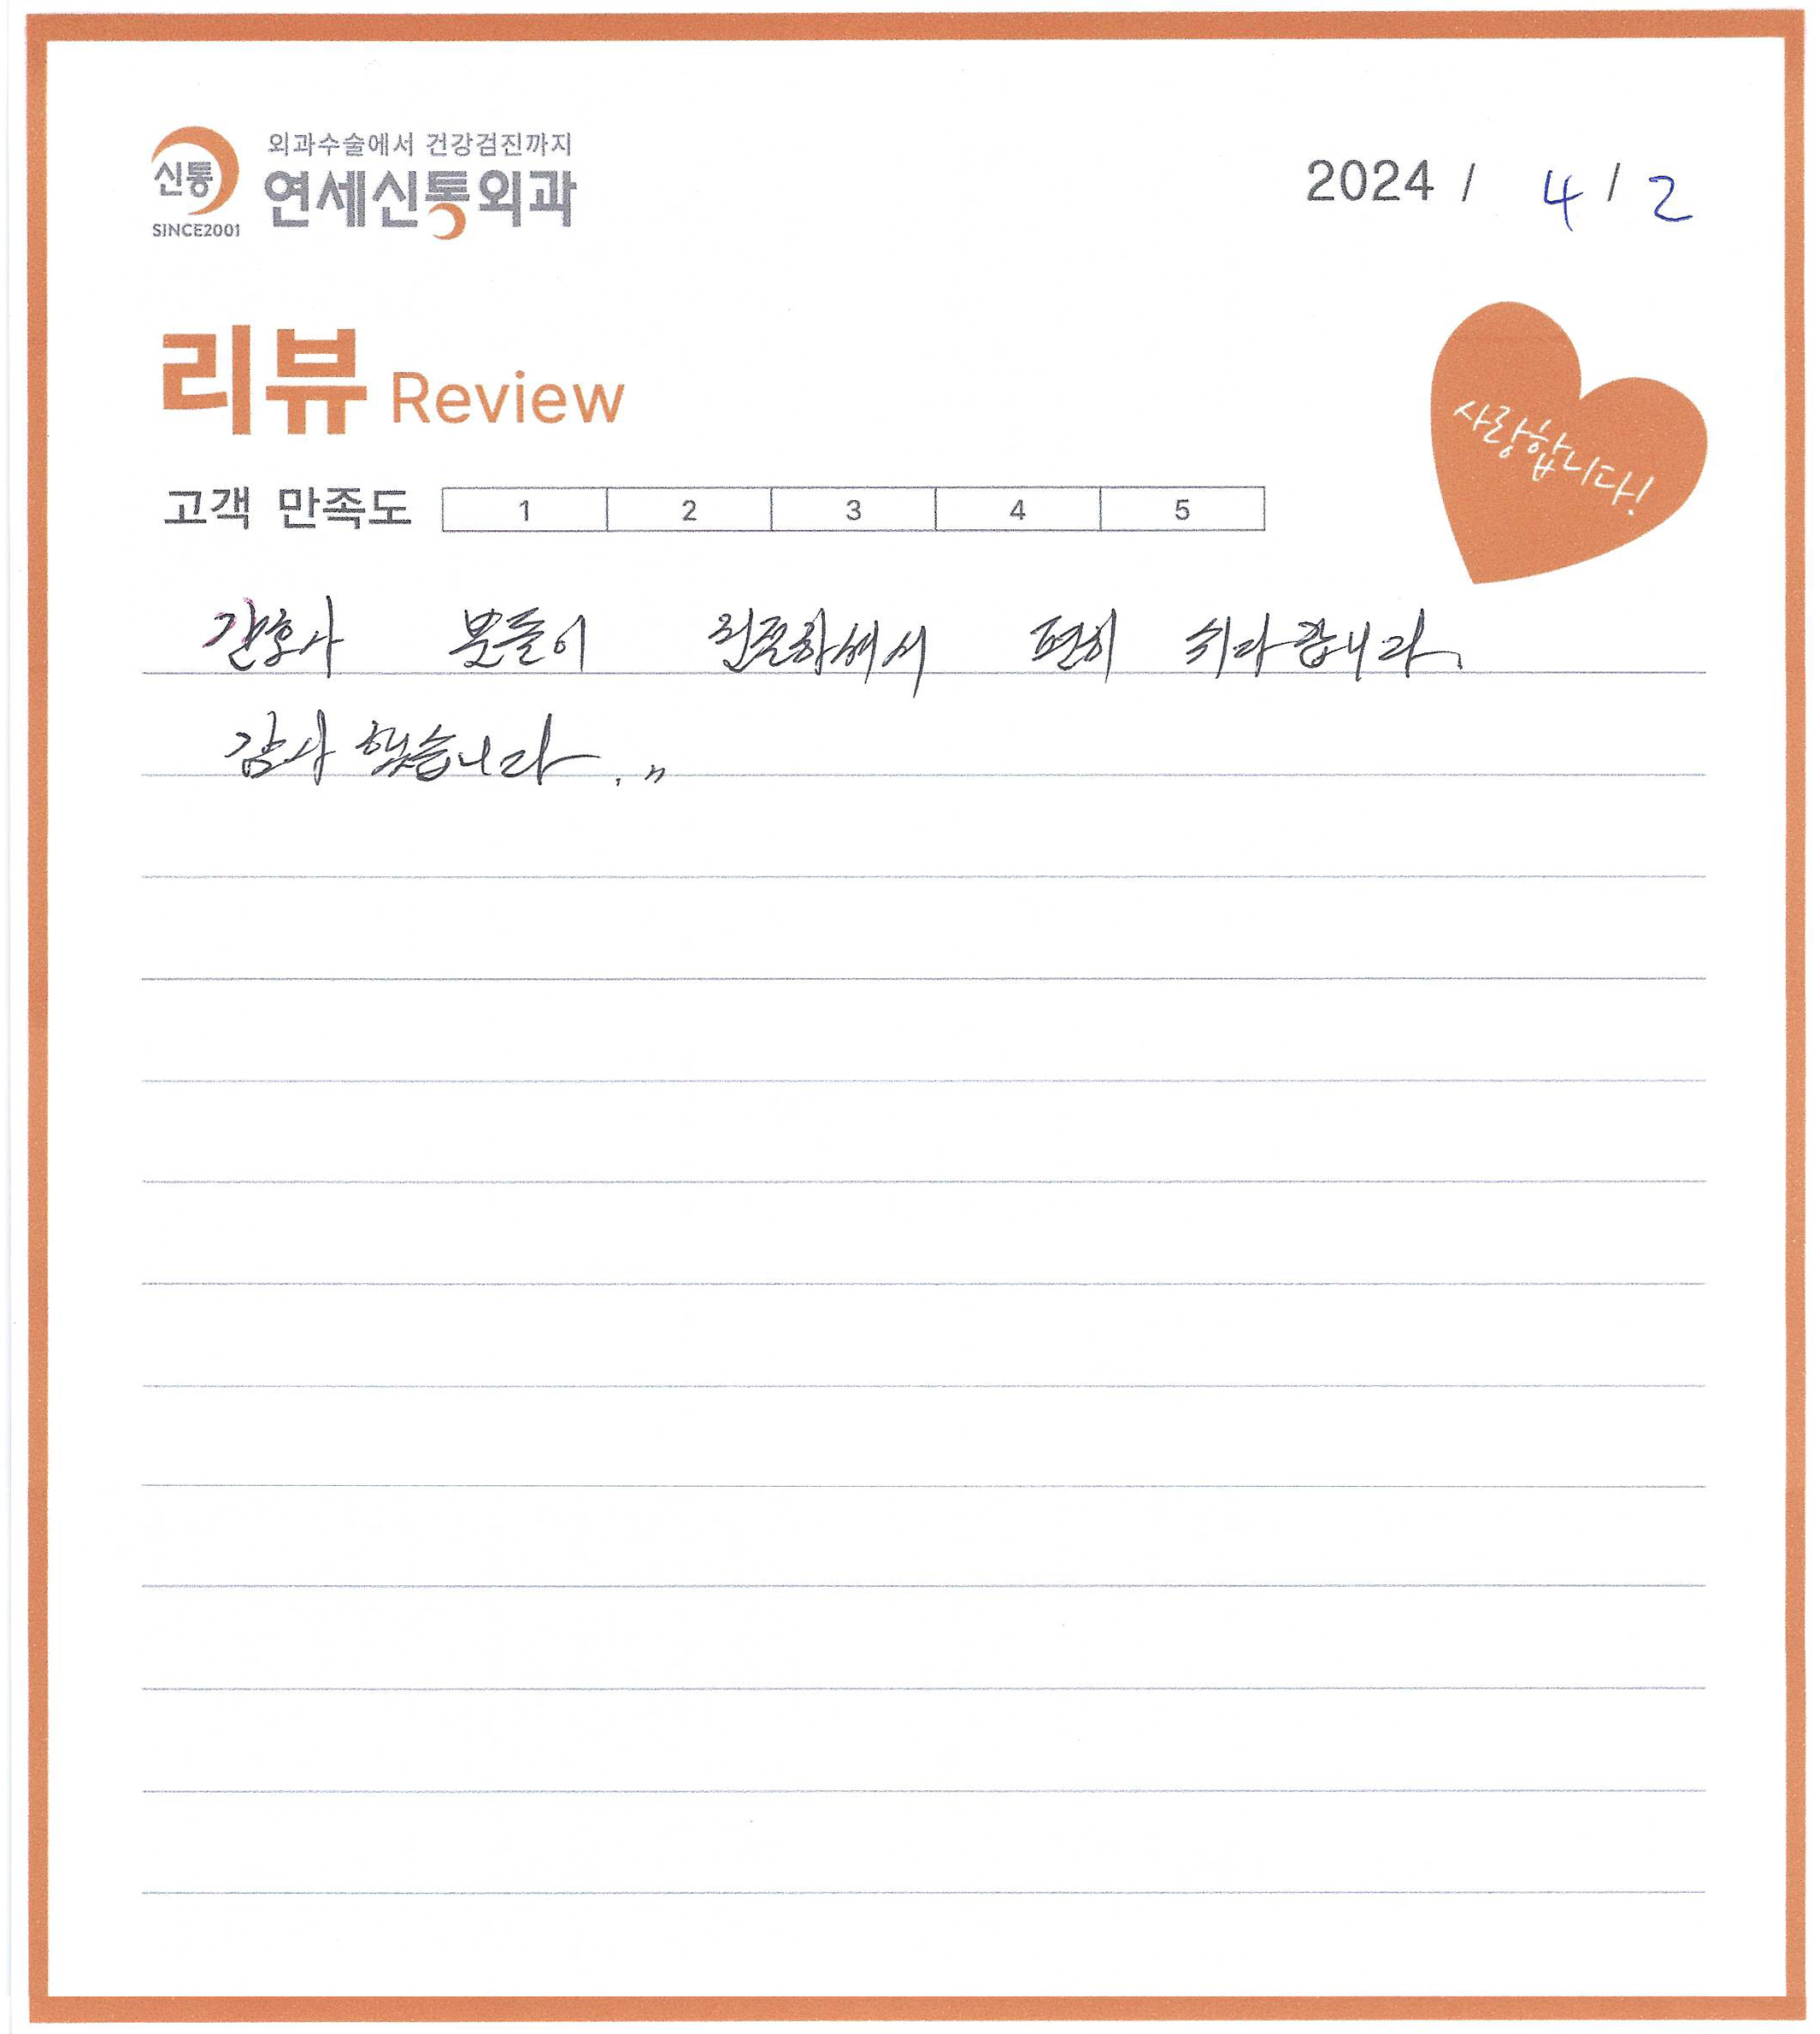 외과수술에서 건강검진까지
신통 연세신통외과
SINCE2001
2024 / 4 / 2
리뷰 Review
사랑합니다!
고객 만족도 1 2 3 4 5
간호사 분들이 친절하셔서 편히 쉬다갑니다.
감사 했습니다.〃